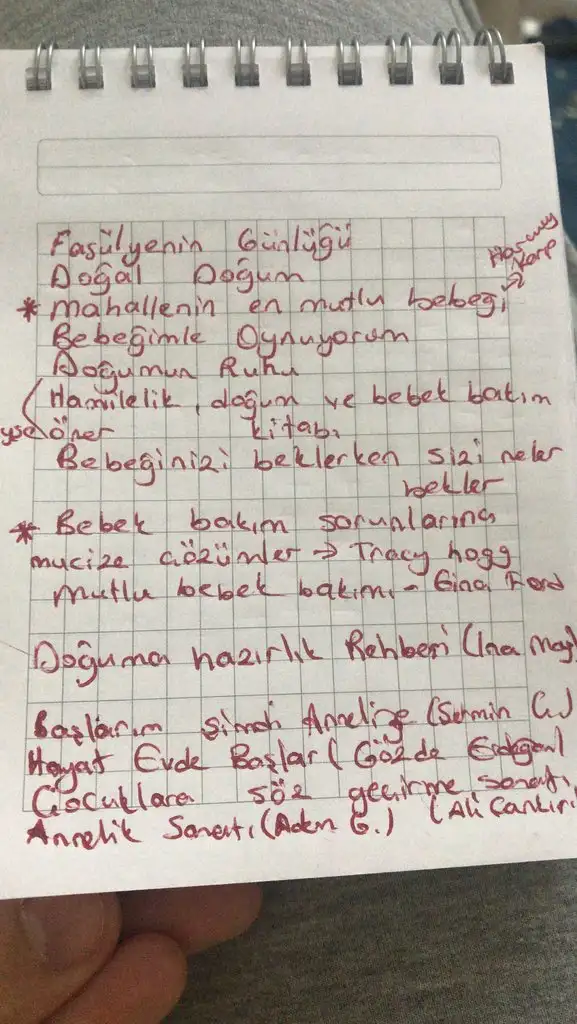 Fasülyenin Günlüğü
Doğal Doğum
* mahallenin en mutlu bebeği → Harvey Karp
Bebeğimle Oynuyorum
Doğumun Ruhu
Hamilelik, doğum ve bebek bakım
öner kitabı
Bebeğinizi beklerken sizi neler
bekler
* Bebek bakım sorunlarına
mucize çözümler → Tracy hogg
mutlu bebek bakımı - Gina Ford
Doğuma hazırlık Rehberi (Ina May)
Başlarım şimdi Anneliğe (Sermin Ç.)
Hayat Evde Başlar (Gözde Erdoğan)
Çocuklara söz geçirme sanatı
Annelik Sanatı (Adem G.) (Ali Çankırı